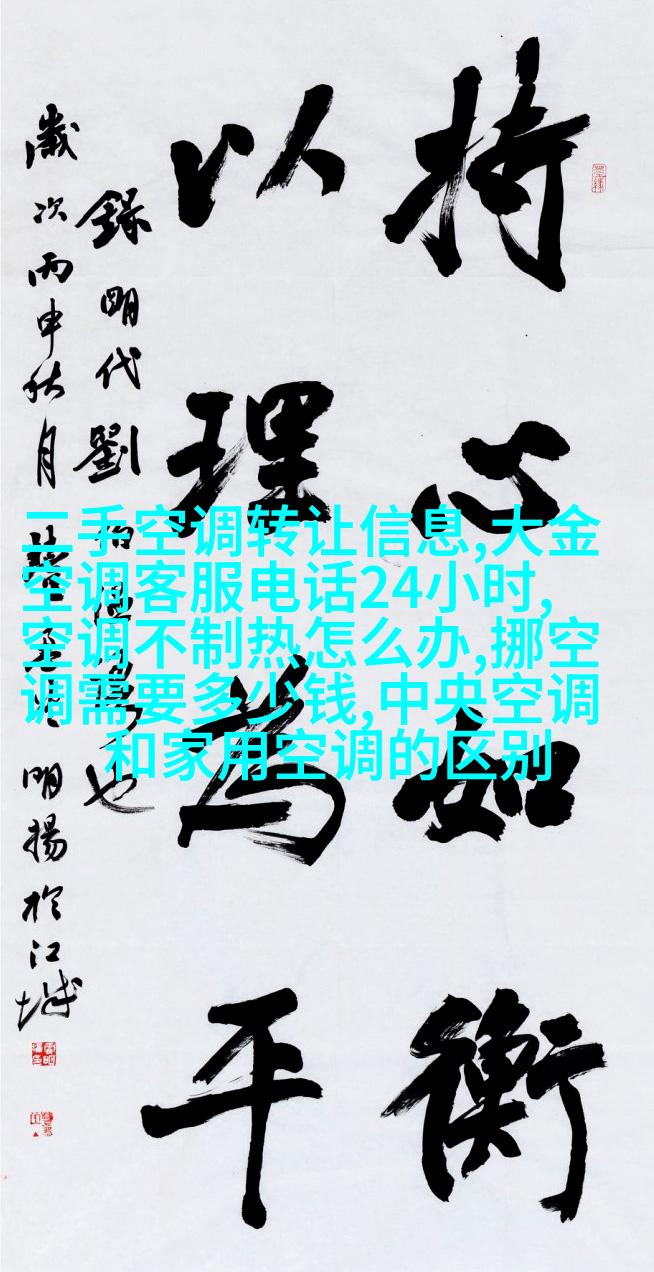 持心如衡
以理为平
錄明代劉伯溫
歲次丙申秋月
明揚於江城
二手空调转让信息,大金
空调客服电话24小时,
空调不制热怎么办,挪空
调需要多少钱,中央空调
和家用空调的区别